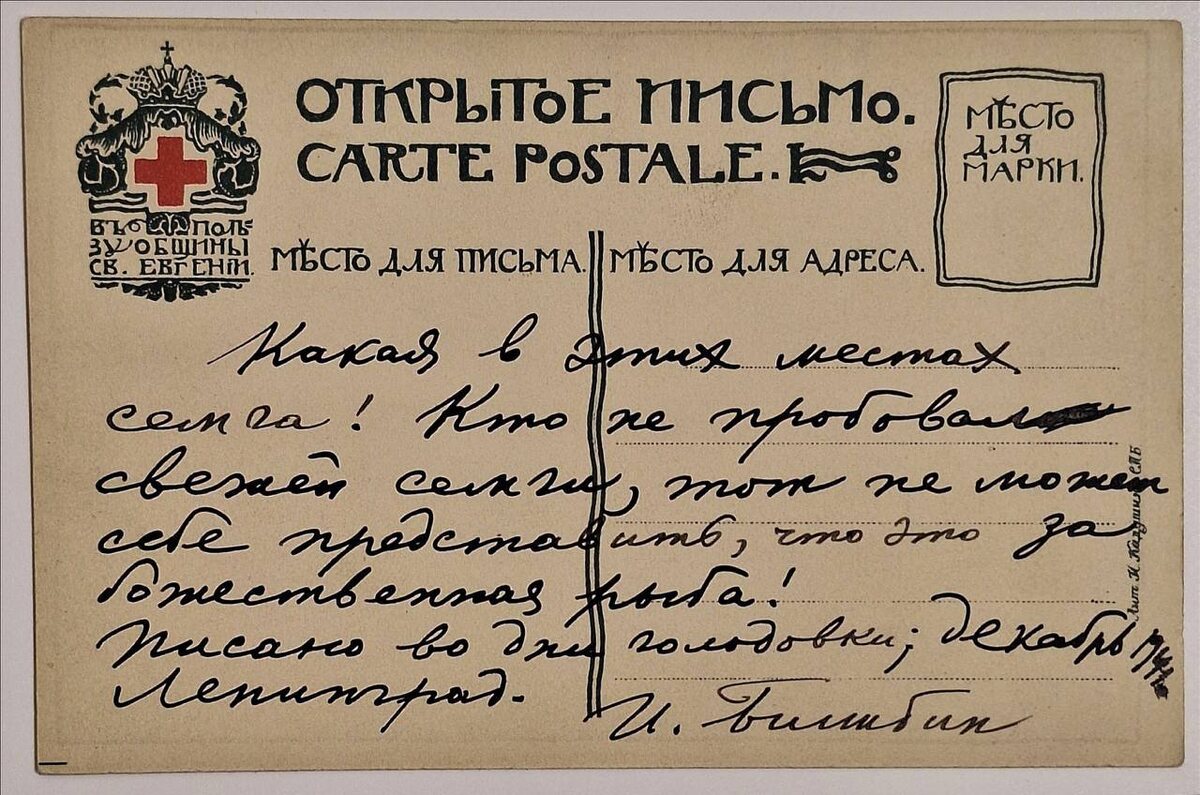 ОТКРЫТОЕ ПИСЬМО.
CARTE POSTALE.
МѢСТО
ДЛЯ
МАРКИ.
ВЪ ПОЛЬ-
ЗУ ОБЩИНЫ
СВ. ЕВГЕНІИ.
МѢСТО ДЛЯ ПИСЬМА.
МѢСТО ДЛЯ АДРЕСА.
Какая в этих местах
семга! Кто не пробовал
свежей семги, тот не может
себе представить, что это за
божественная рыба!
Писано во дни голодовки; декабрь
Ленинград.
И. Билибин
Лит. Н. Кадушин СПБ